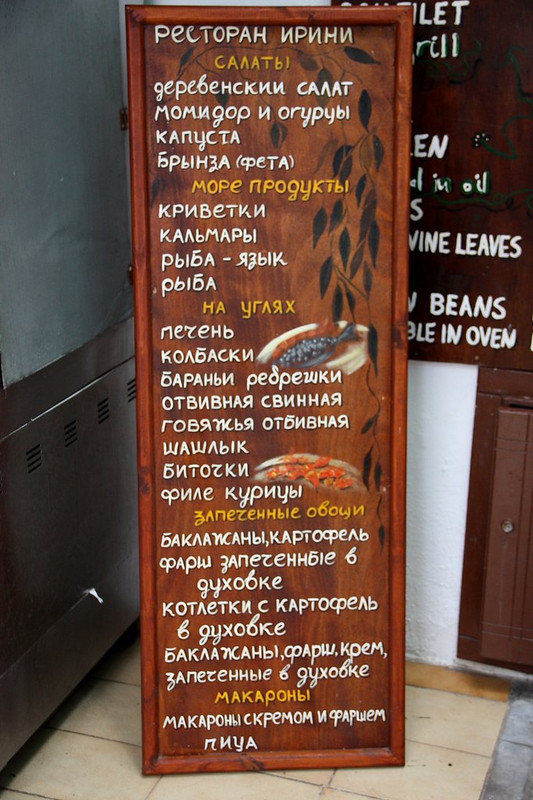 РЕСТОРАН ИРИНИ
САЛАТЫ
деревенскии САЛАТ
МОМИДОР И ОГУРУЫ
КАПУСТА
БРЫНЗА (ФЕТА)
МОРЕ ПРОДУКТЫ
КРИВЕТКИ
КАЛЬМАРЫ
РЫБА - ЯЗЫК
РЫБА
НА УГЛЯХ
ПЕЧЕНЬ
КОЛБАСКИ
БАРАНЬИ РЕБРЕШКИ
ОТВИВНАЯ СВИННАЯ
ГОВЯЖЬЯ ОТБИВНАЯ
ШАШЛЫК
БИТОЧКИ
ФИЛЕ КУРИУЫ
ЗАПЕЧЕННЫЕ ОВОЩИ
БАКЛАЖАНЫ,КАРТОФЕЛЬ
ФАРШ ЗАПЕЧЕННЫЕ В
ДУХОВКЕ
КОТЛЕТКИ С КАРТОФЕЛЬ
В ДУХОВКЕ
БАКЛАЖАНЫ,ФАРШ,КРЕМ,
ЗАПЕЧЕННЫЕ В ДУХОВКЕ
МАКАРОНЫ
МАКАРОНЫ С КРЕМОМ И ФАРШЕМ
ПИУА
FILET
grill
EN
in oil
VINE LEAVES
BEANS
BLE IN OVEN